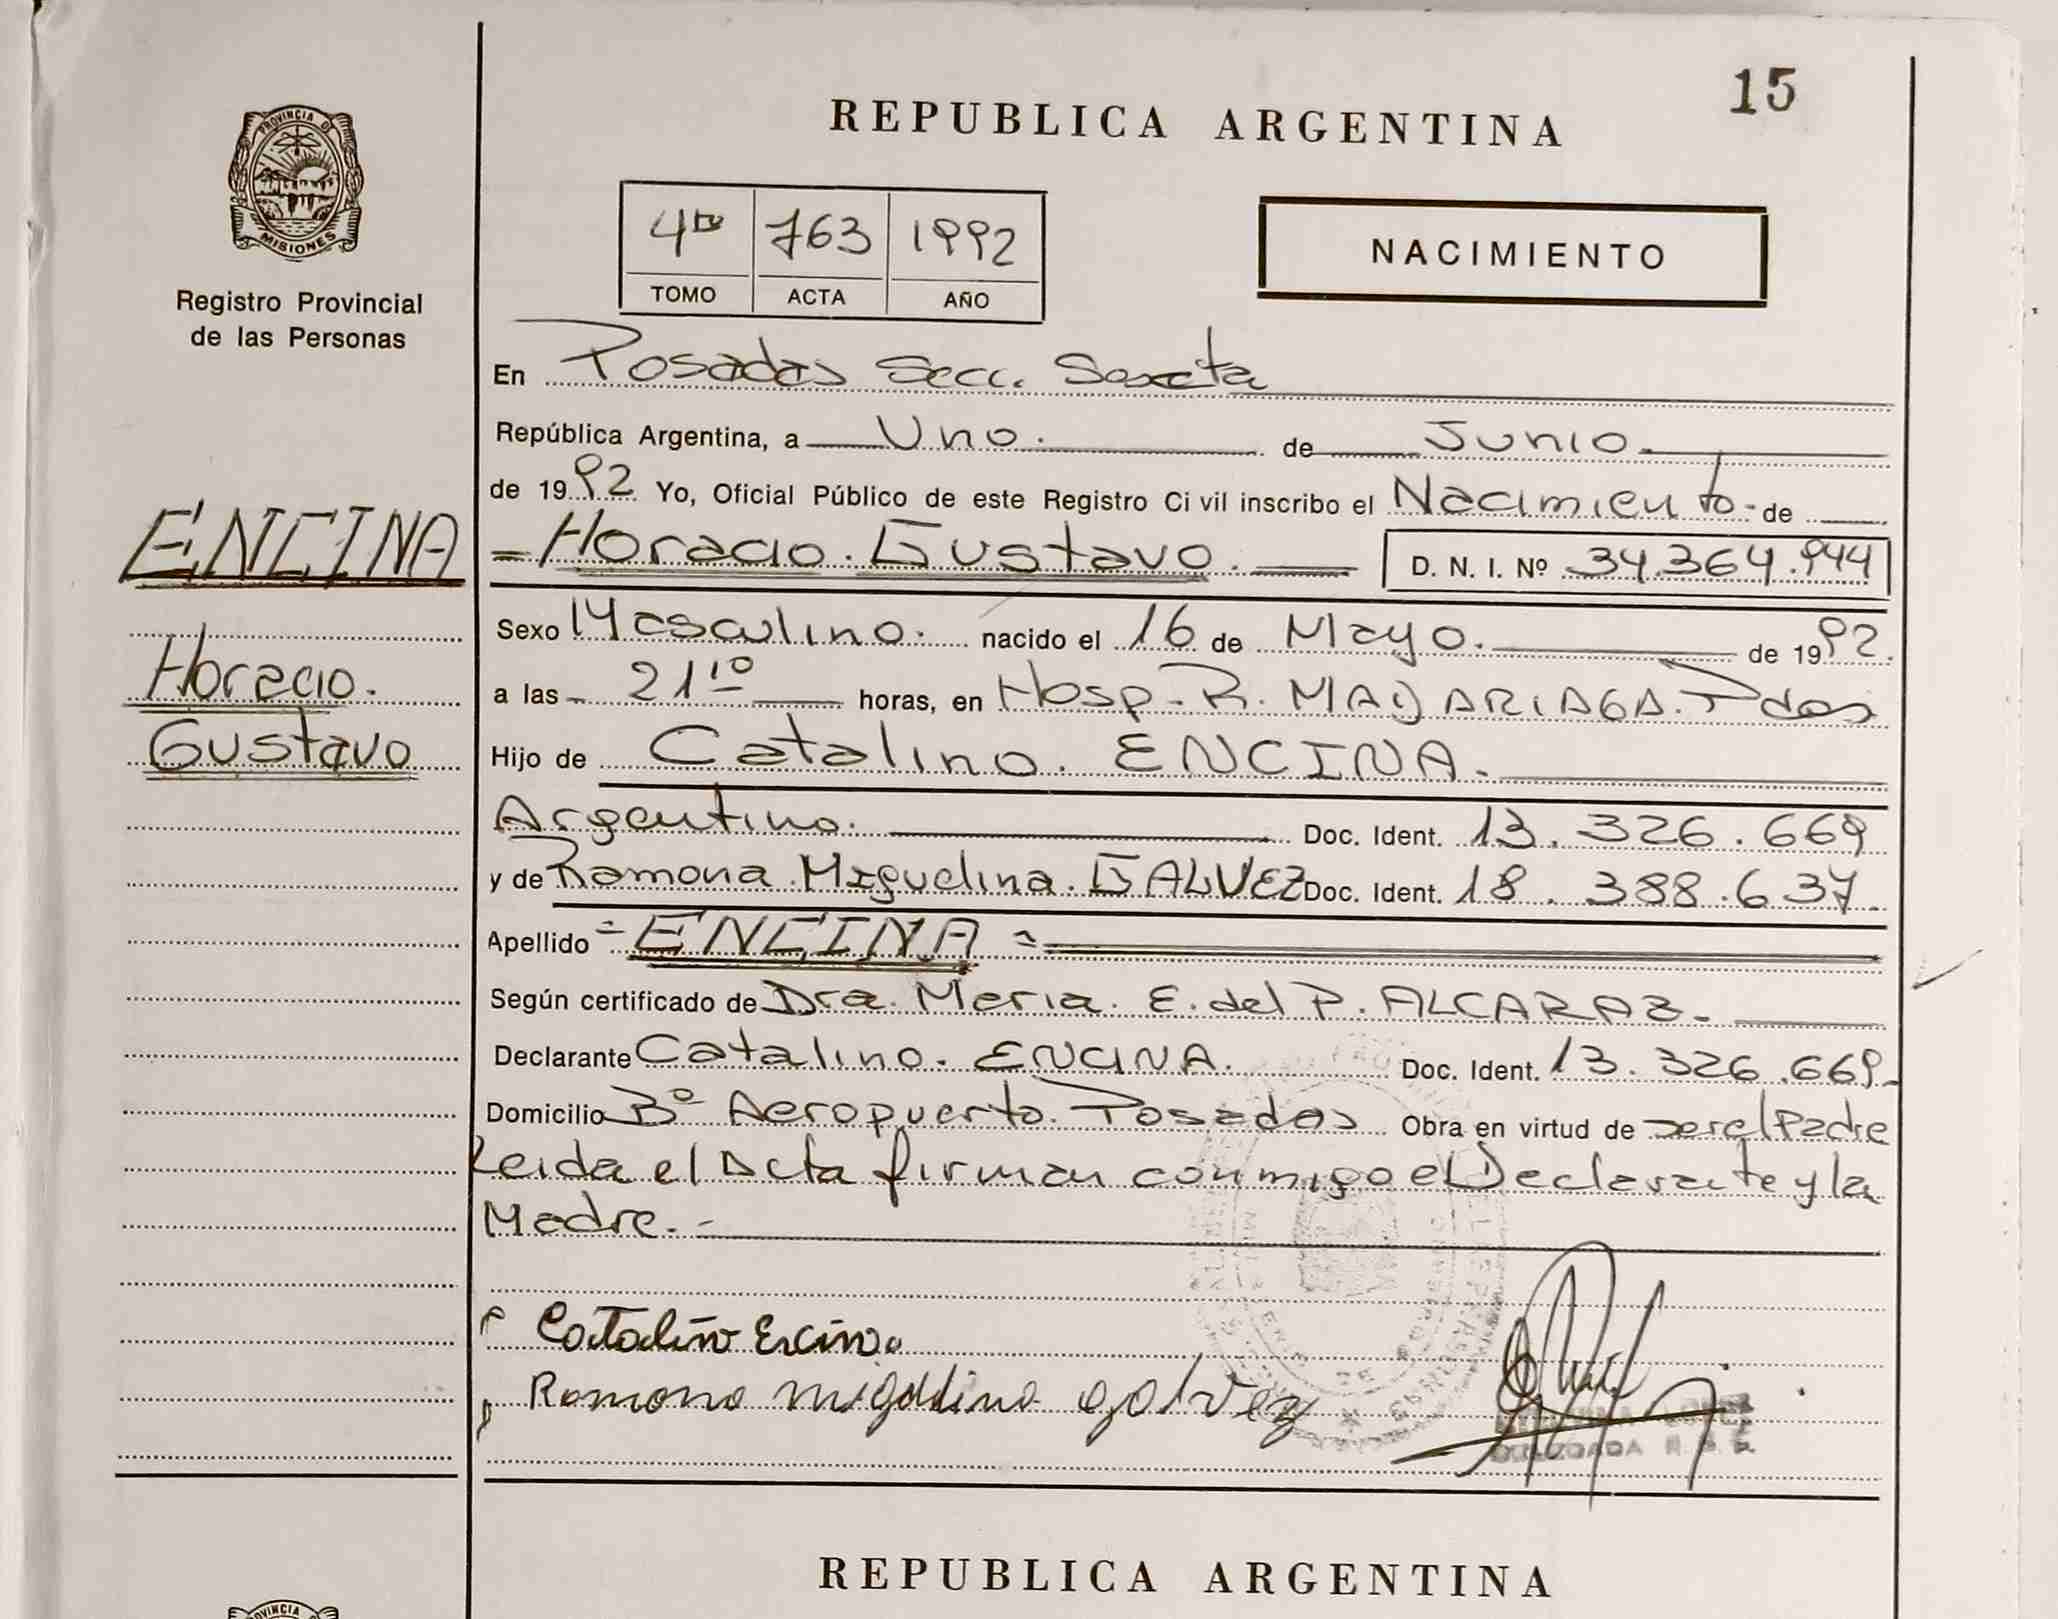 15
REPUBLICA ARGENTINA
PROVINCIA DE
MISIONES
Registro Provincial
de las Personas
4to 763 1992
TOMO ACTA AÑO
NACIMIENTO
En Posadas Secc. Sexta
República Argentina, a Uno. de Junio
de 1992 Yo, Oficial Público de este Registro Civil inscribo el Nacimiento de
ENCINA
= Horacio. Gustavo. D. N. I. Nº 34.364.944
Sexo Masculino. nacido el 16 de Mayo. de 1992.
Horacio.
a las 21 10 horas, en Hosp. R. MADARIAGA. Pdas
Gustavo
Hijo de Catalino. ENCINA.
Argentino. Doc. Ident. 13.326.669
y de Ramona. Miguelina. GALVEZ Doc. Ident. 18.388.637.
Apellido = ENCINA =
Según certificado de Dra. Maria. E. del P. ALCARAZ.
Declarante Catalino. ENCINA. Doc. Ident. 13.326.669.
Domicilio Bº Aeropuerto. Posadas Obra en virtud de ser el Padre
Leida el Acta firman conmigo el Declarante y la
Madre.-
Catalino Encina
Ramona migdalina galvez
REPUBLICA ARGENTINA
PROVINCIA